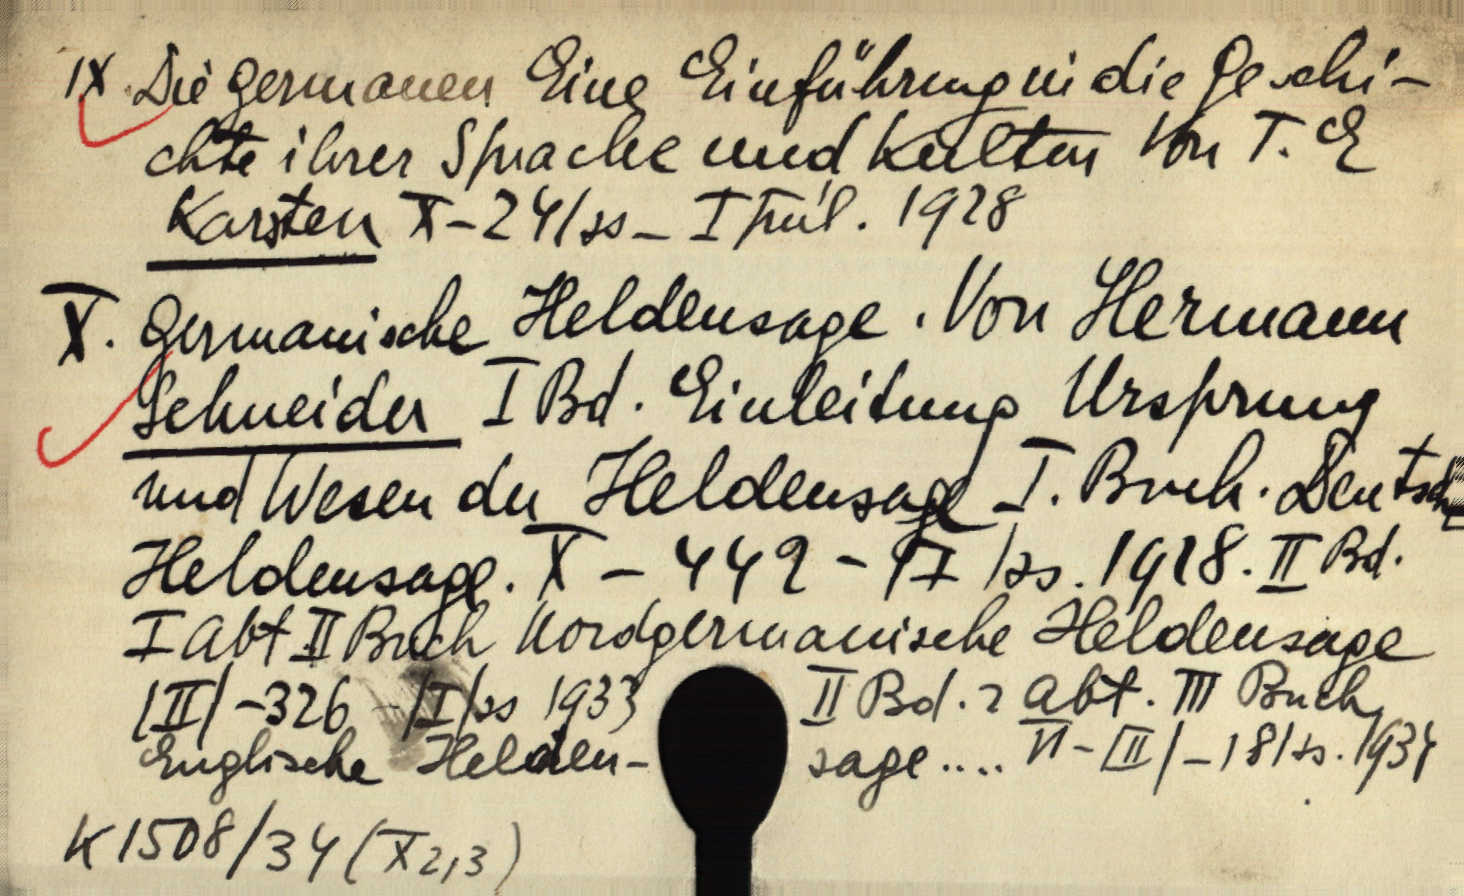 IX. Die Germanen Eine Einführung in die Geschi-
chte ihrer Sprache und Kultur Von T. E
Karsten X-241ss - I 1928
X. Germanische Heldensage. Von Hermann
Schneider I Bd. Einleitung Ursprung
und Wesen der Heldensage I. Buch. Deutsche
Heldensage. X - 442 - /ss. 1928. II Bd.
I Abt II Buch Nordgermanische Heldensage
/II/ -326 - /I/ss 1933 II Bd. 2 Abt. III Buch
Englische Helden- sage .... VI - /II/ - 181ss. 1934
K 1508/34 (X 2,3)